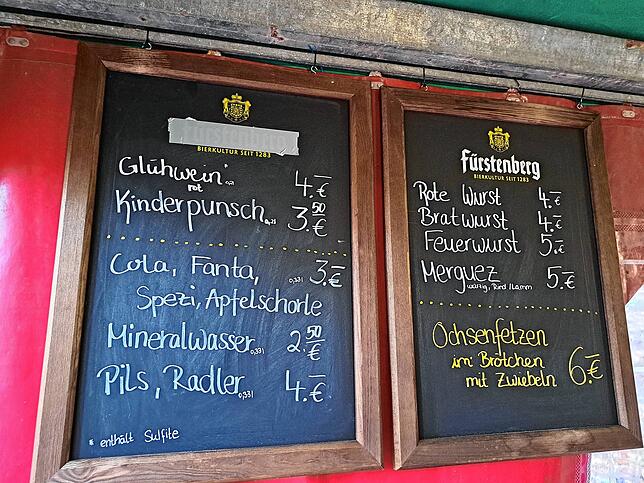 BIERKULTUR SEIT 1283
Glühwein 4.-€
rot
Kinderpunsch 3.50€
Cola, Fanta, 0,33l 3.-€
Spezi, Apfelschorle
Mineralwasser 0,33l 2.50€
Pils, Radler 0,33l 4.-€
* enthält Sulfite
Fürstenberg
BIERKULTUR SEIT 1283
Rote Wurst 4.-€
Bratwurst 4.-€
Feuerwurst 5.-€
Merguez 5.-€
würzig, Rind/Lamm
Ochsenfetzen
im Brötchen 6.-€
mit Zwiebeln